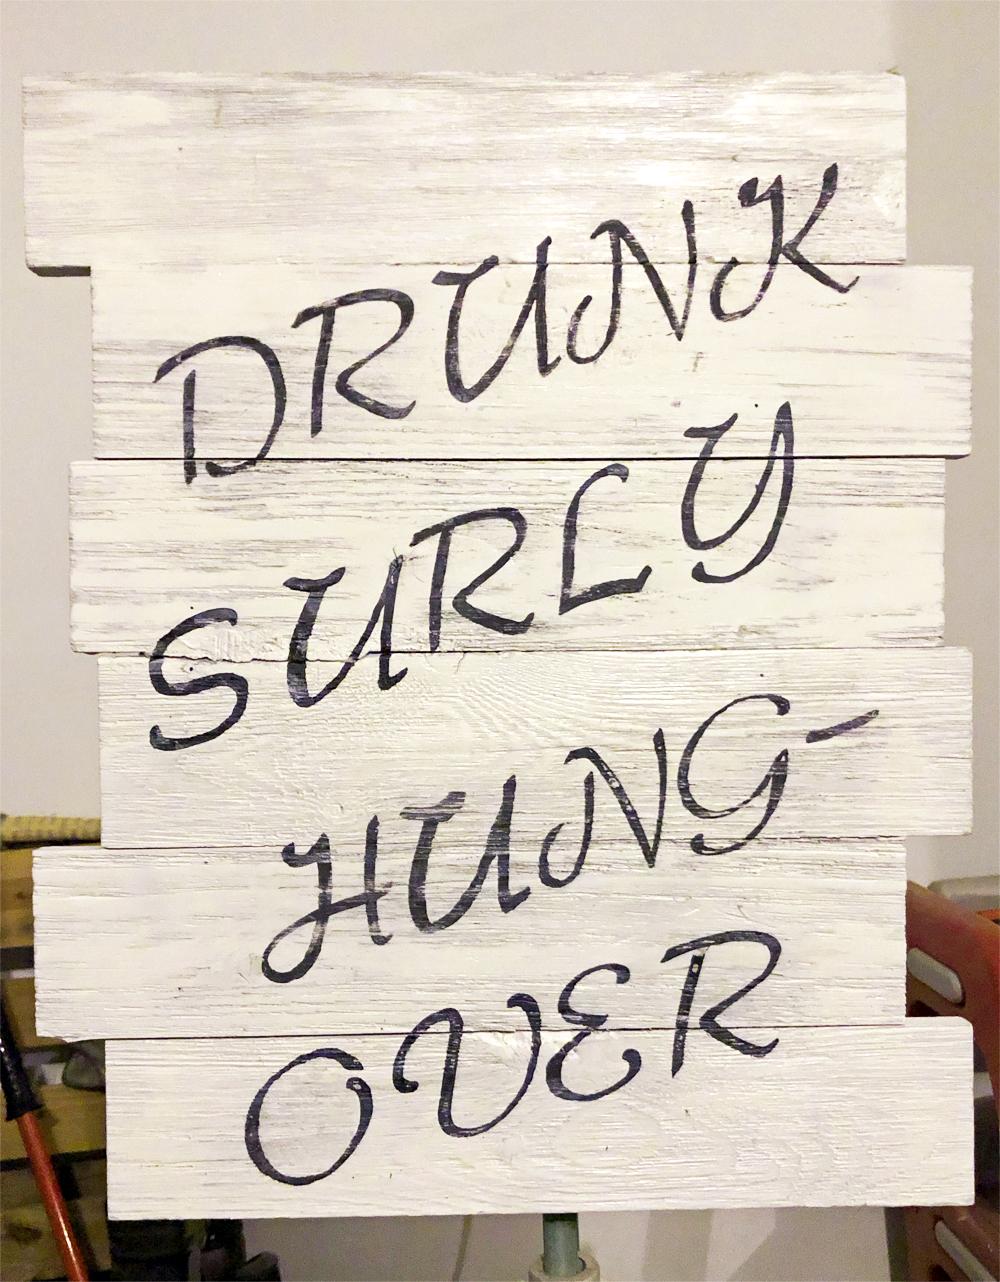 DRUNK
SURLY
HUNG-
OVER